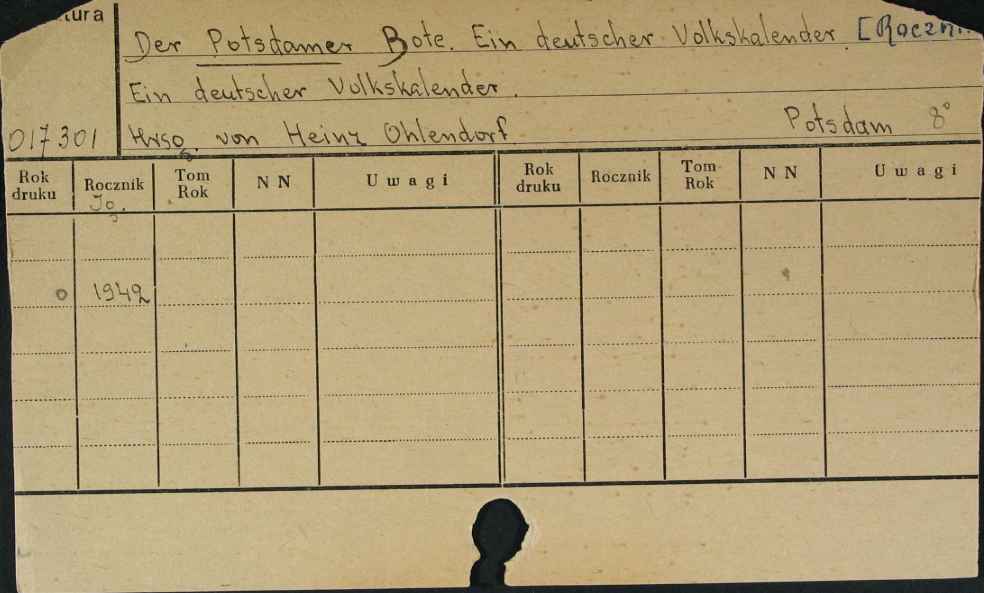 tura
Der Potsdamer Bote. Ein deutscher Volkskalender. [Roczni
Ein deutscher Volkskalender.
017301 Hrsg. von Heinz Ohlendorf Potsdam 8°
Rok druku Rocznik Tom Rok N N Uwagi Rok druku Rocznik Tom Rok N N Uwagi
Jg.
o 1942